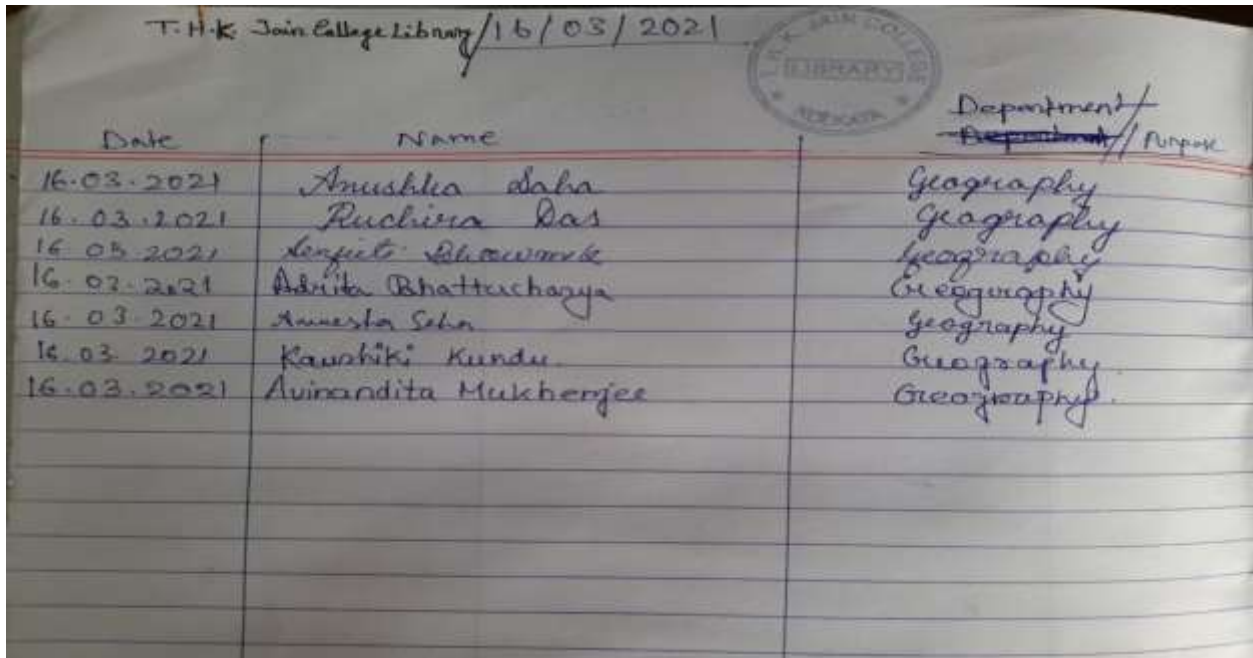 T.H.K. Jain College Library/16/03/2021
T.H.K. JAIN COLLEGE
LIBRARY
KOLKATA
Department/
Date Name Department // Purpose
16.03.2021 Anushka Saha Geography
16.03.2021 Ruchira Das Geography
16 03 2021 Bhowmik Geography
16.03.2021 Adrita Bhattacharya Geography
16.03.2021 Saha Geography
16.03.2021 Kaushiki Kundu. Geography
16.03.2021 Avinandita Mukherjee Geography.